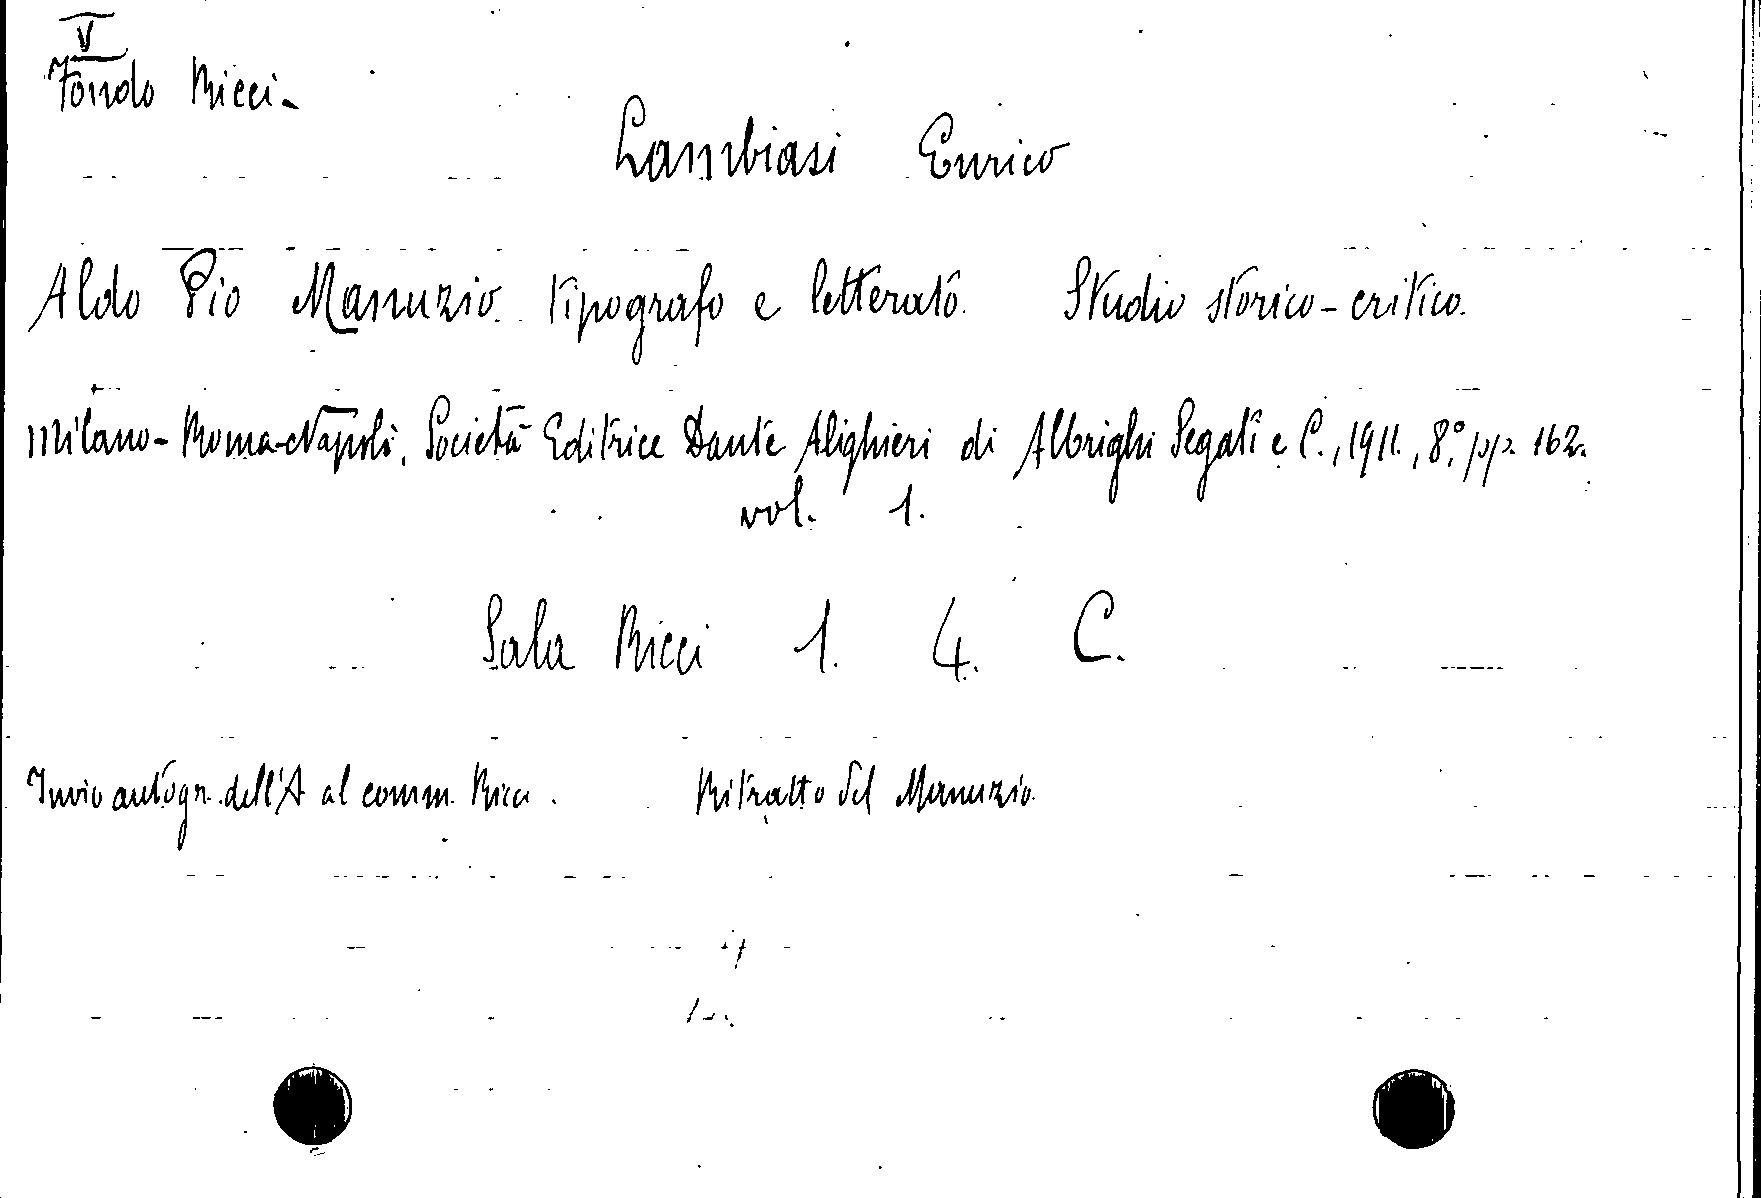 V
Fondo Ricci.
Lambiasi Enrico
Aldo Pio Manuzio tipografo e letterato. Studio storico-critico.
Milano-Roma-Napoli, Società Editrice Dante Alighieri di Albrighi Segati e C., 1911., 8.° pp. 162.
vol. 1.
Sala Ricci 1. 4. C.
Invio autogr. dell'A al comm. Ricci. Ritratto del Manuzio.